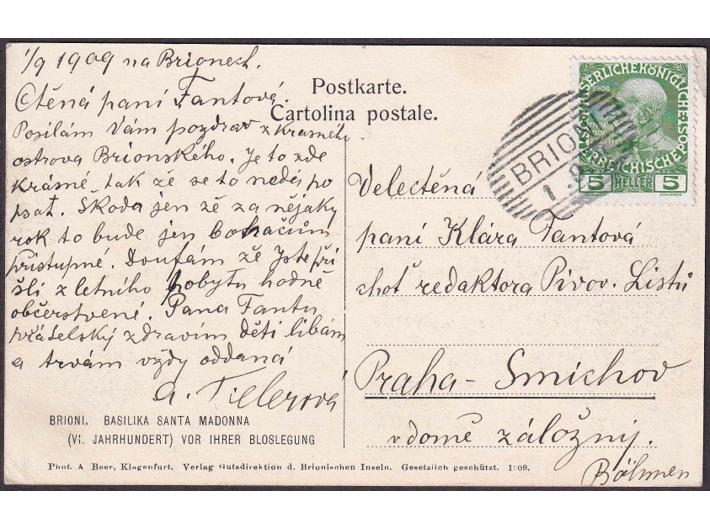 1/9 1909 na Brionech.
Ctěná paní Fantová.
Posílám Vám pozdrav z krásného
ostrova Brionského. Je to zde
krásné, tak že se to nedej po
psat. Škoda jen že za nějaky
rok to bude jen boháčům
přístupné. Doufám že jste při
šli z letního pobytu hodně
občerstvené. Pana Fantu
přátelský zdravím děti líbám
a trvám vždy oddaná
A. Tillerová
BRIONI. BASILIKA SANTA MADONNA
(VI. JAHRHUNDERT) VOR IHRER BLOSLEGUNG
Phot. A Beer, Klagenfurt. Verlag Gutsdirektion d. Brionischen Inseln. Gesetzlich geschützt. 1909.
Postkarte.
Cartolina postale.
BRIONI
1 9
1908
5 HELLER 5
Velectěná
paní Klára Fantová
choť redaktora Pivov. Listů
Praha - Smichov
v domě záložny.
Böhmen